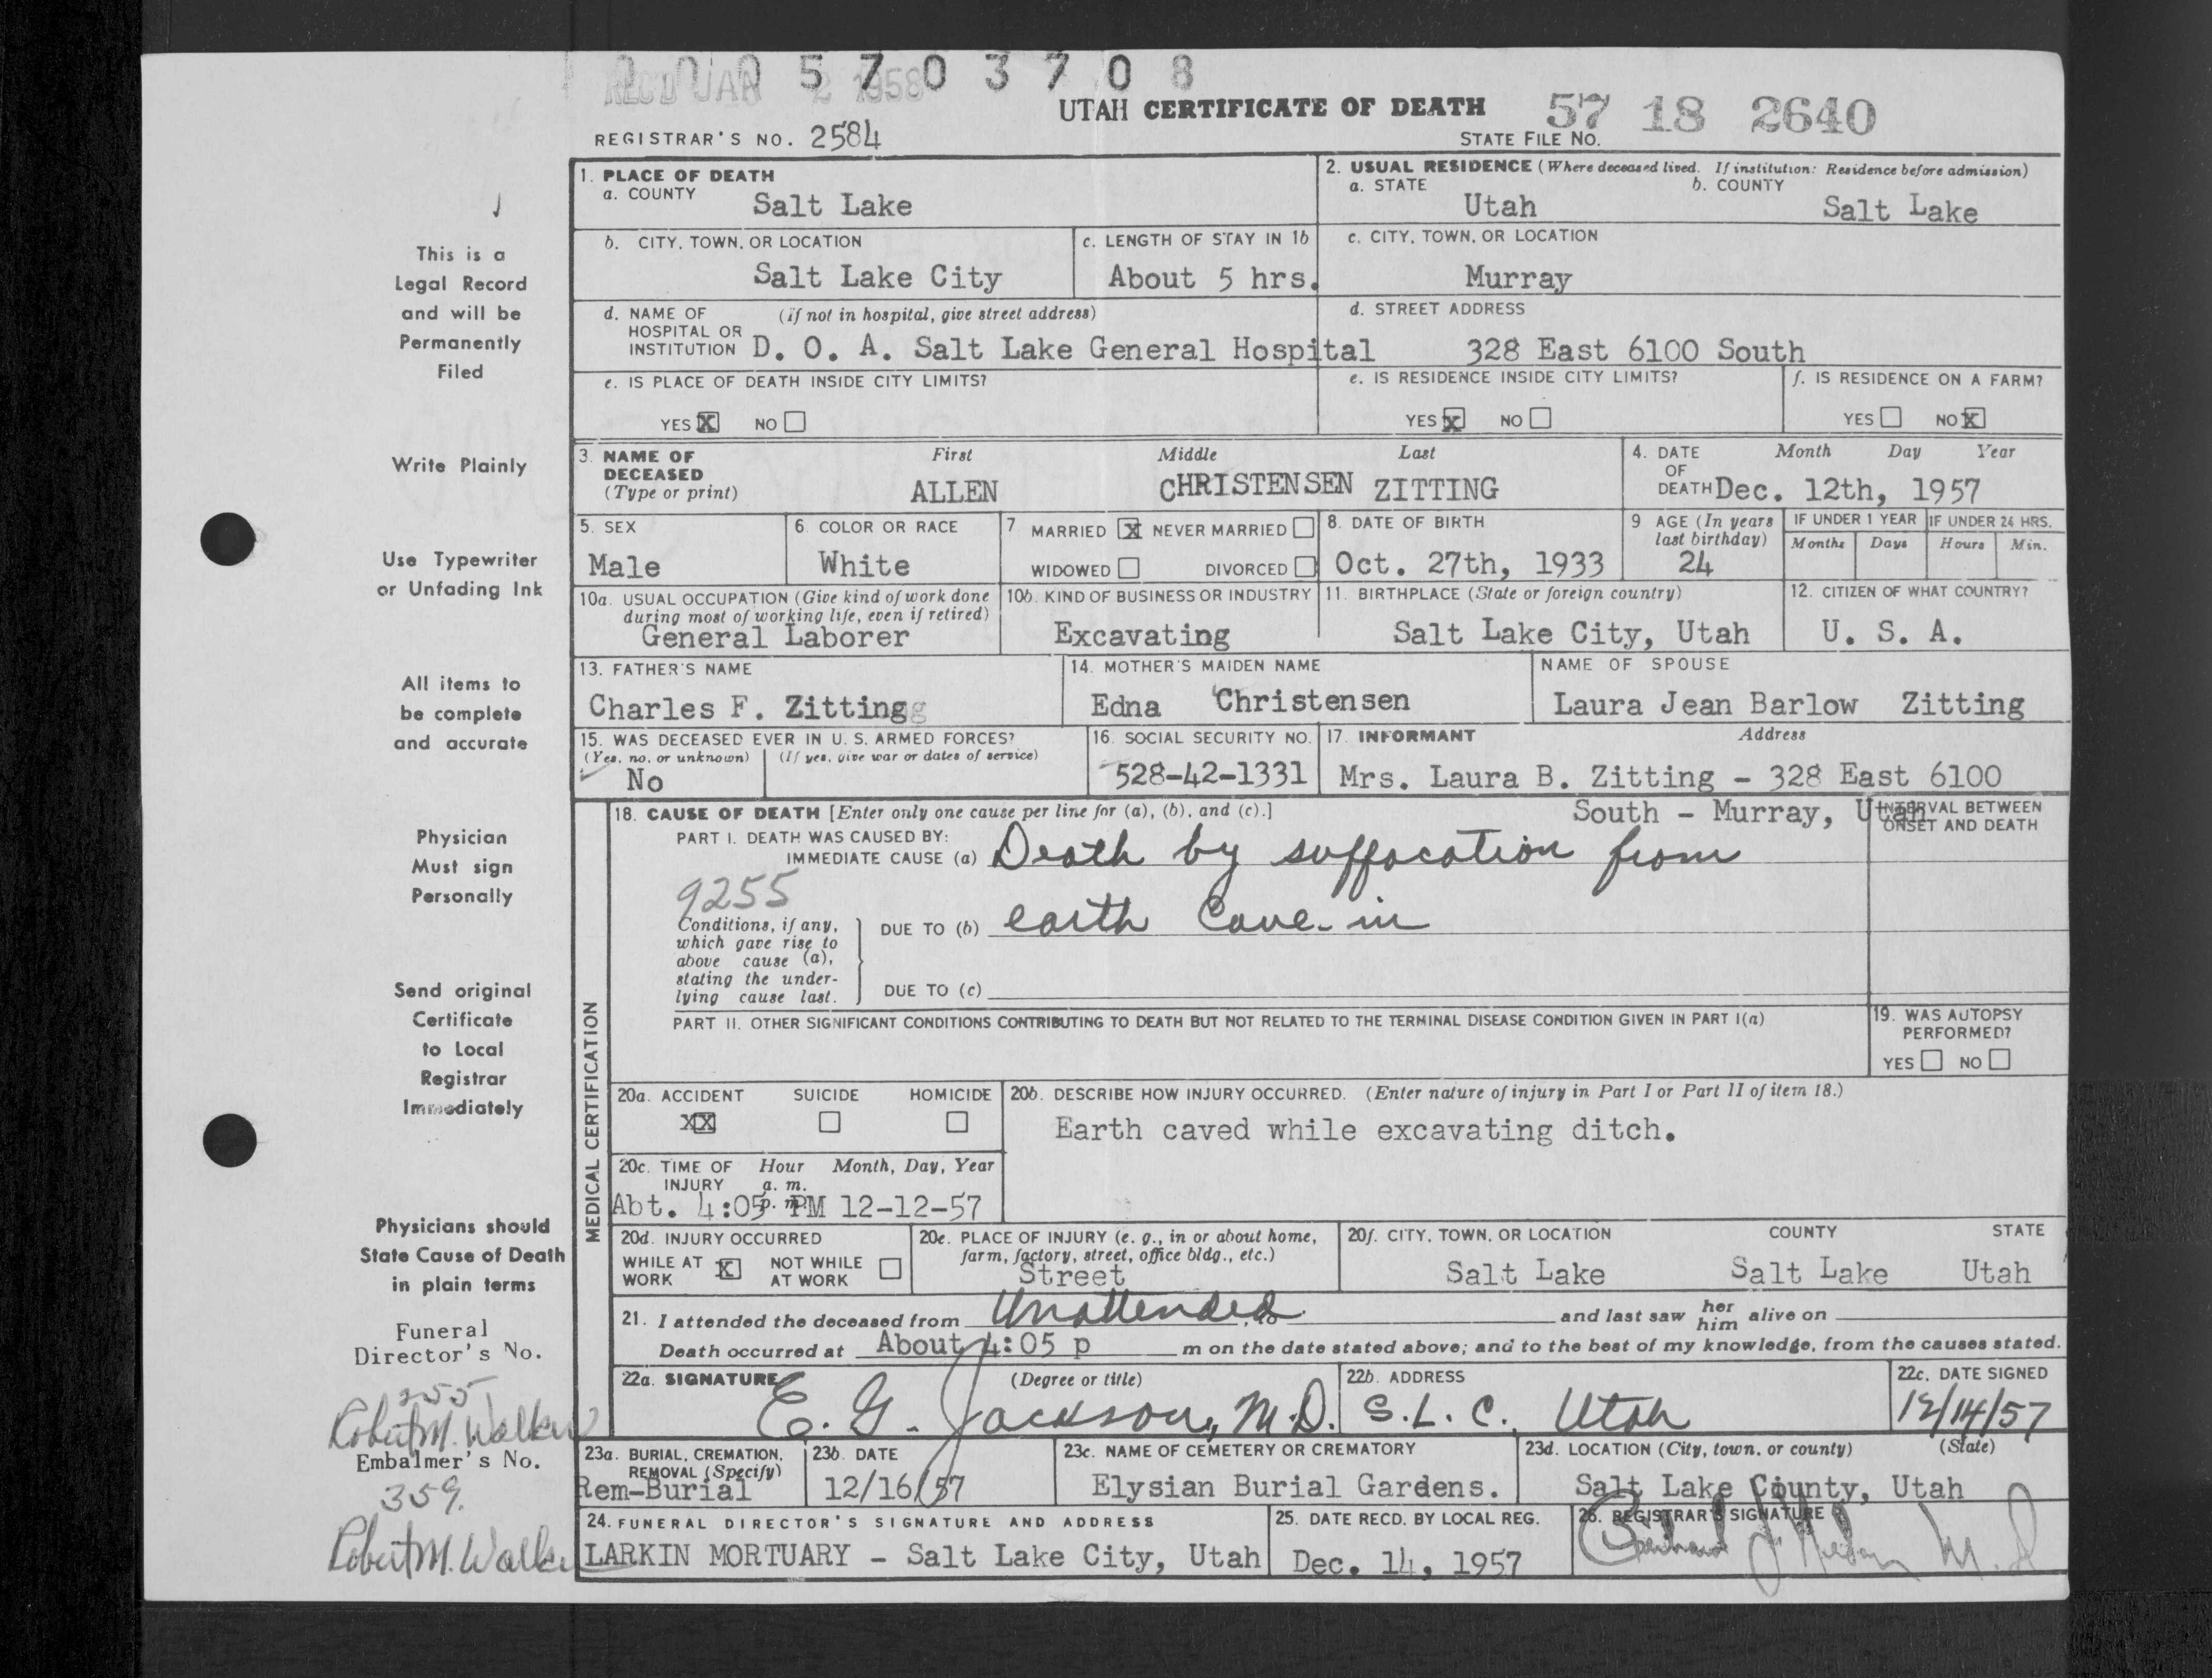 0 0 0 5 7 0 3 7 0 8
REC'D JAN 2 1958
UTAH CERTIFICATE OF DEATH
57 18 2640
REGISTRAR'S NO. 2584
STATE FILE NO.
This is a
Legal Record
and will be
Permanently
Filed
Write Plainly
Use Typewriter
or Unfading Ink
All items to
be complete
and accurate
Physician
Must sign
Personally
Send original
Certificate
to Local
Registrar
Immediately
Physicians should
State Cause of Death
in plain terms
Funeral
Director's No.
255
Robert M. Walker
Embalmer's No.
359.
Robert M. Walker
1. PLACE OF DEATH
a. COUNTY
Salt Lake
2. USUAL RESIDENCE (Where deceased lived. If institution: Residence before admission)
a. STATE
Utah
b. COUNTY
Salt Lake
b. CITY, TOWN, OR LOCATION
Salt Lake City
c. LENGTH OF STAY IN 1b
About 5 hrs.
c. CITY, TOWN, OR LOCATION
Murray
d. NAME OF (if not in hospital, give street address)
HOSPITAL OR
INSTITUTION D. O. A. Salt Lake General Hospital
d. STREET ADDRESS
328 East 6100 South
e. IS PLACE OF DEATH INSIDE CITY LIMITS?
YES X NO
e. IS RESIDENCE INSIDE CITY LIMITS?
YES X NO
f. IS RESIDENCE ON A FARM?
YES NO X
3. NAME OF DECEASED
(Type or print)
First Middle Last
ALLEN CHRISTENSEN ZITTING
4. DATE OF DEATH
Month Day Year
Dec. 12th, 1957
5. SEX
Male
6. COLOR OR RACE
White
7 MARRIED X NEVER MARRIED
WIDOWED DIVORCED
8. DATE OF BIRTH
Oct. 27th, 1933
9 AGE (In years
last birthday)
24
IF UNDER 1 YEAR
Months Days
IF UNDER 24 HRS.
Hours Min.
10a. USUAL OCCUPATION (Give kind of work done
during most of working life, even if retired)
General Laborer
10b. KIND OF BUSINESS OR INDUSTRY
Excavating
11. BIRTHPLACE (State or foreign country)
Salt Lake City, Utah
12. CITIZEN OF WHAT COUNTRY?
U. S. A.
13. FATHER'S NAME
Charles F. Zitting
14. MOTHER'S MAIDEN NAME
Edna Christensen
NAME OF SPOUSE
Laura Jean Barlow Zitting
15. WAS DECEASED EVER IN U. S. ARMED FORCES?
(Yes, no, or unknown) (If yes, give war or dates of service)
No
16. SOCIAL SECURITY NO.
528-42-1331
17. INFORMANT Address
Mrs. Laura B. Zitting - 328 East 6100
South - Murray, Utah
MEDICAL CERTIFICATION
18. CAUSE OF DEATH [Enter only one cause per line for (a), (b), and (c).]
INTERVAL BETWEEN
ONSET AND DEATH
PART I. DEATH WAS CAUSED BY:
IMMEDIATE CAUSE (a) Death by suffocation from
9255
Conditions, if any,
which gave rise to
above cause (a),
stating the under-
lying cause last.
DUE TO (b) earth Cave-in
DUE TO (c)
PART II. OTHER SIGNIFICANT CONDITIONS CONTRIBUTING TO DEATH BUT NOT RELATED TO THE TERMINAL DISEASE CONDITION GIVEN IN PART I(a)
19. WAS AUTOPSY
PERFORMED?
YES NO
20a. ACCIDENT SUICIDE HOMICIDE
XX
20b. DESCRIBE HOW INJURY OCCURRED. (Enter nature of injury in Part I or Part II of item 18.)
Earth caved while excavating ditch.
20c. TIME OF Hour Month, Day, Year
INJURY a. m.
p. m.
Abt. 4:05 PM 12-12-57
20d. INJURY OCCURRED
WHILE AT WORK X NOT WHILE AT WORK
20e. PLACE OF INJURY (e. g., in or about home,
farm, factory, street, office bldg., etc.)
Street
20f. CITY, TOWN, OR LOCATION COUNTY STATE
Salt Lake Salt Lake Utah
21. I attended the deceased from Unattended, to and last saw her him alive on
Death occurred at About 4:05 p m on the date stated above; and to the best of my knowledge, from the causes stated.
22a. SIGNATURE (Degree or title)
E. G. Jackson, M.D.
22b. ADDRESS
S.L.C., Utah
22c. DATE SIGNED
12/14/57
23a. BURIAL, CREMATION,
REMOVAL (Specify)
Rem-Burial
23b. DATE
12/16/57
23c. NAME OF CEMETERY OR CREMATORY
Elysian Burial Gardens.
23d. LOCATION (City, town, or county) (State)
Salt Lake County, Utah
24. FUNERAL DIRECTOR'S SIGNATURE AND ADDRESS
LARKIN MORTUARY - Salt Lake City, Utah
25. DATE RECD. BY LOCAL REG.
Dec. 14, 1957
26. REGISTRAR'S SIGNATURE